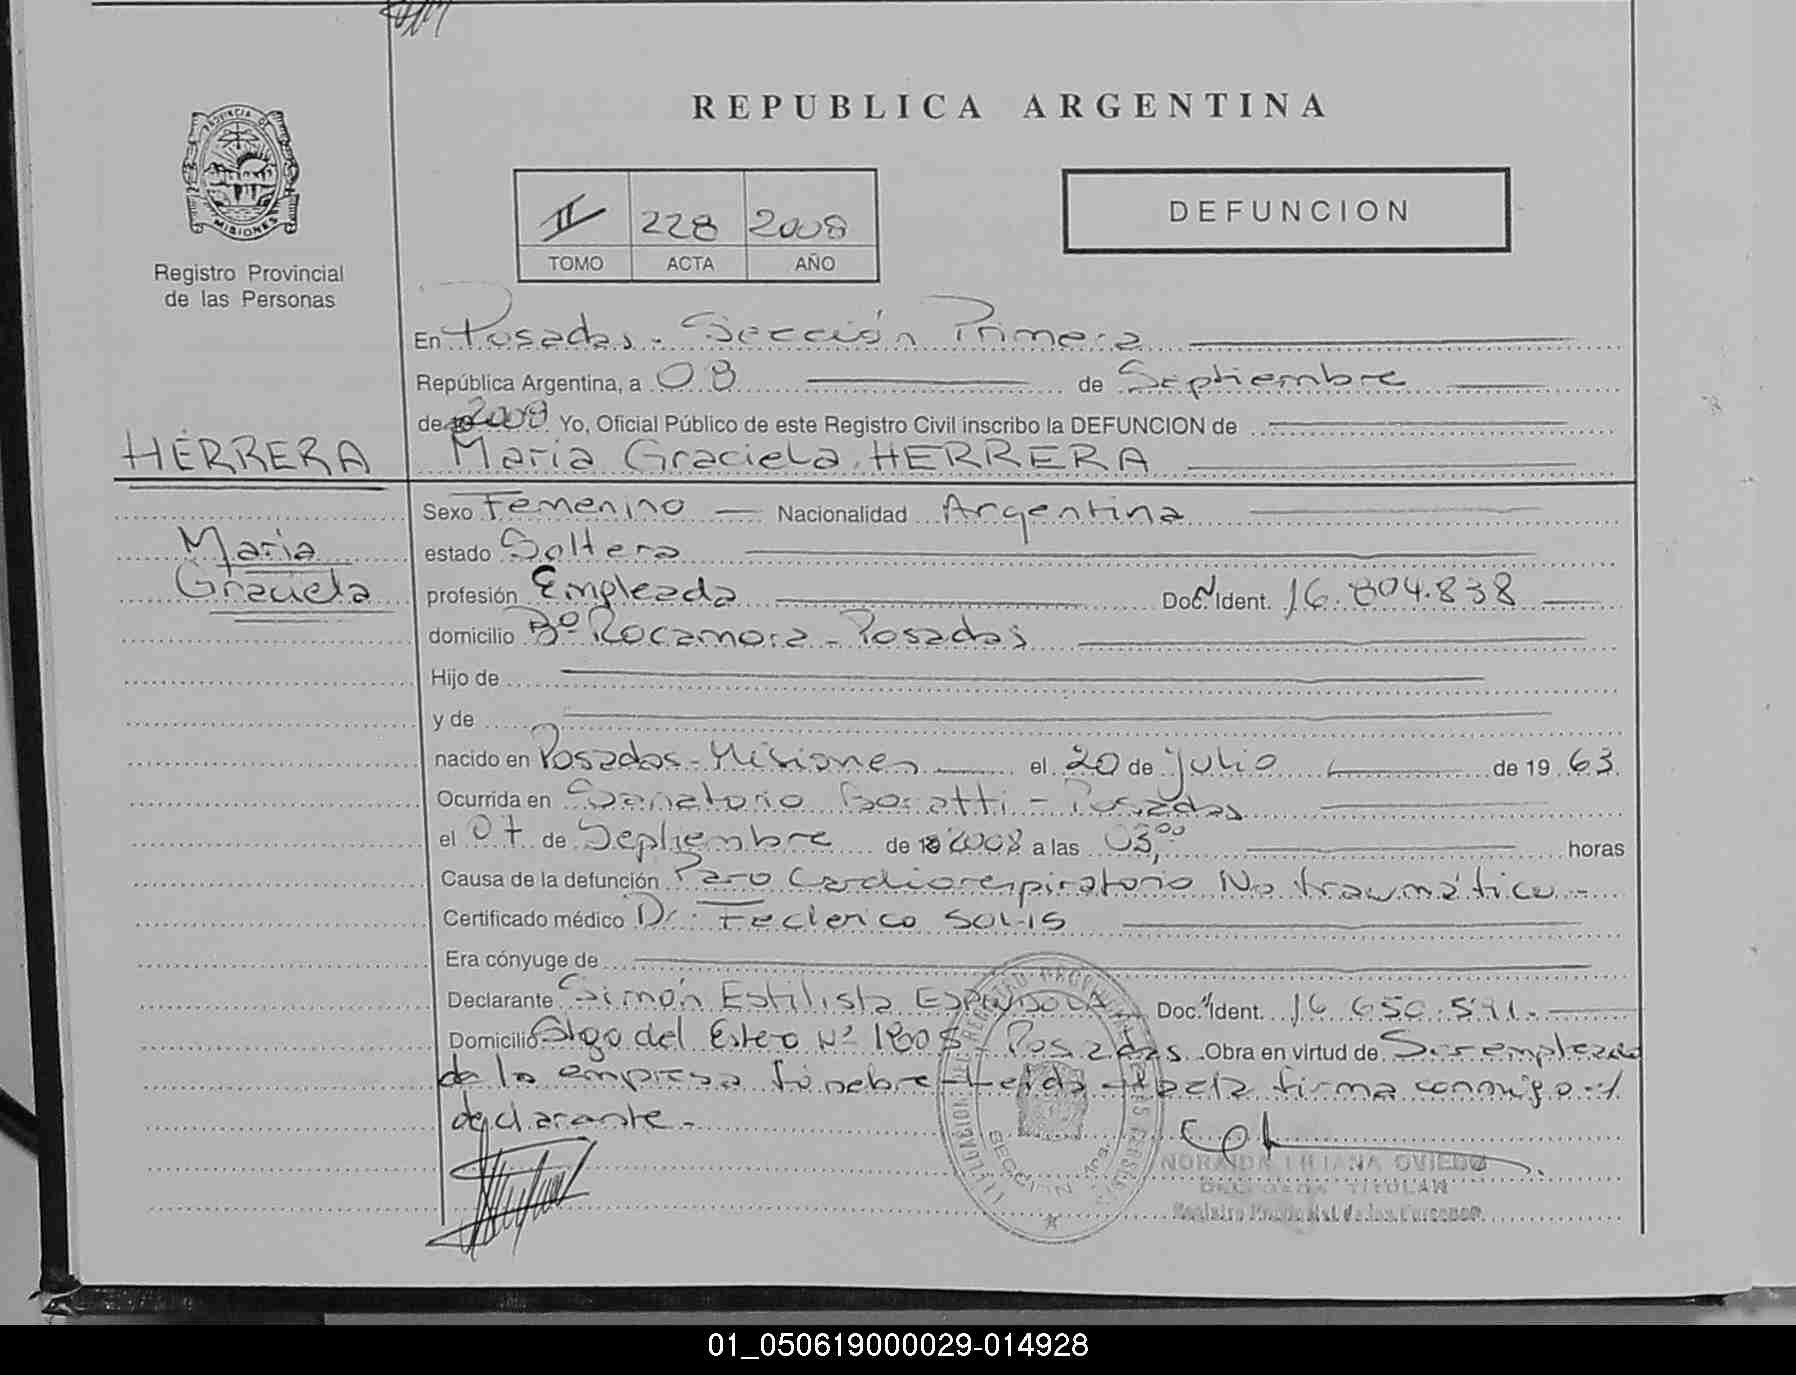 REPUBLICA ARGENTINA
PROVINCIA DE
MISIONES
Registro Provincial
de las Personas
II 228 2008
TOMO ACTA AÑO
DEFUNCION
En Posadas - Sección Primera
República Argentina, a 08 de Septiembre
de 2008 Yo, Oficial Público de este Registro Civil inscribo la DEFUNCION de
HERRERA
Maria Graciela HERRERA
Maria
Graciela
Sexo Femenino Nacionalidad Argentina
estado Soltera
profesión Empleada Doc. Ident. 16.804.838
domicilio Bº Rocamora - Posadas
Hijo de
y de
nacido en Posadas - Misiones el 20 de julio de 19 63.
Ocurrida en Sanatorio Boratti - Posadas
el 07 de Septiembre de 2008 a las 03,00 horas
Causa de la defunción Paro Cardiorespiratorio No traumático -
Certificado médico Dr. Federico SOLIS
Era cónyuge de
Declarante Simón Estilista ESPINDOLA Doc. Ident. 16 650.591.
Domicilio Stgo del Estero Nº 1805 - Posadas Obra en virtud de Ser empleado
de la empresa fúnebre - Leida el acta firma conmigo el
declarante -
NORAIDA LILIANA OVIEDO
DELEGADA TITULAR
Registro Provincial de las Personas
01_050619000029-014928